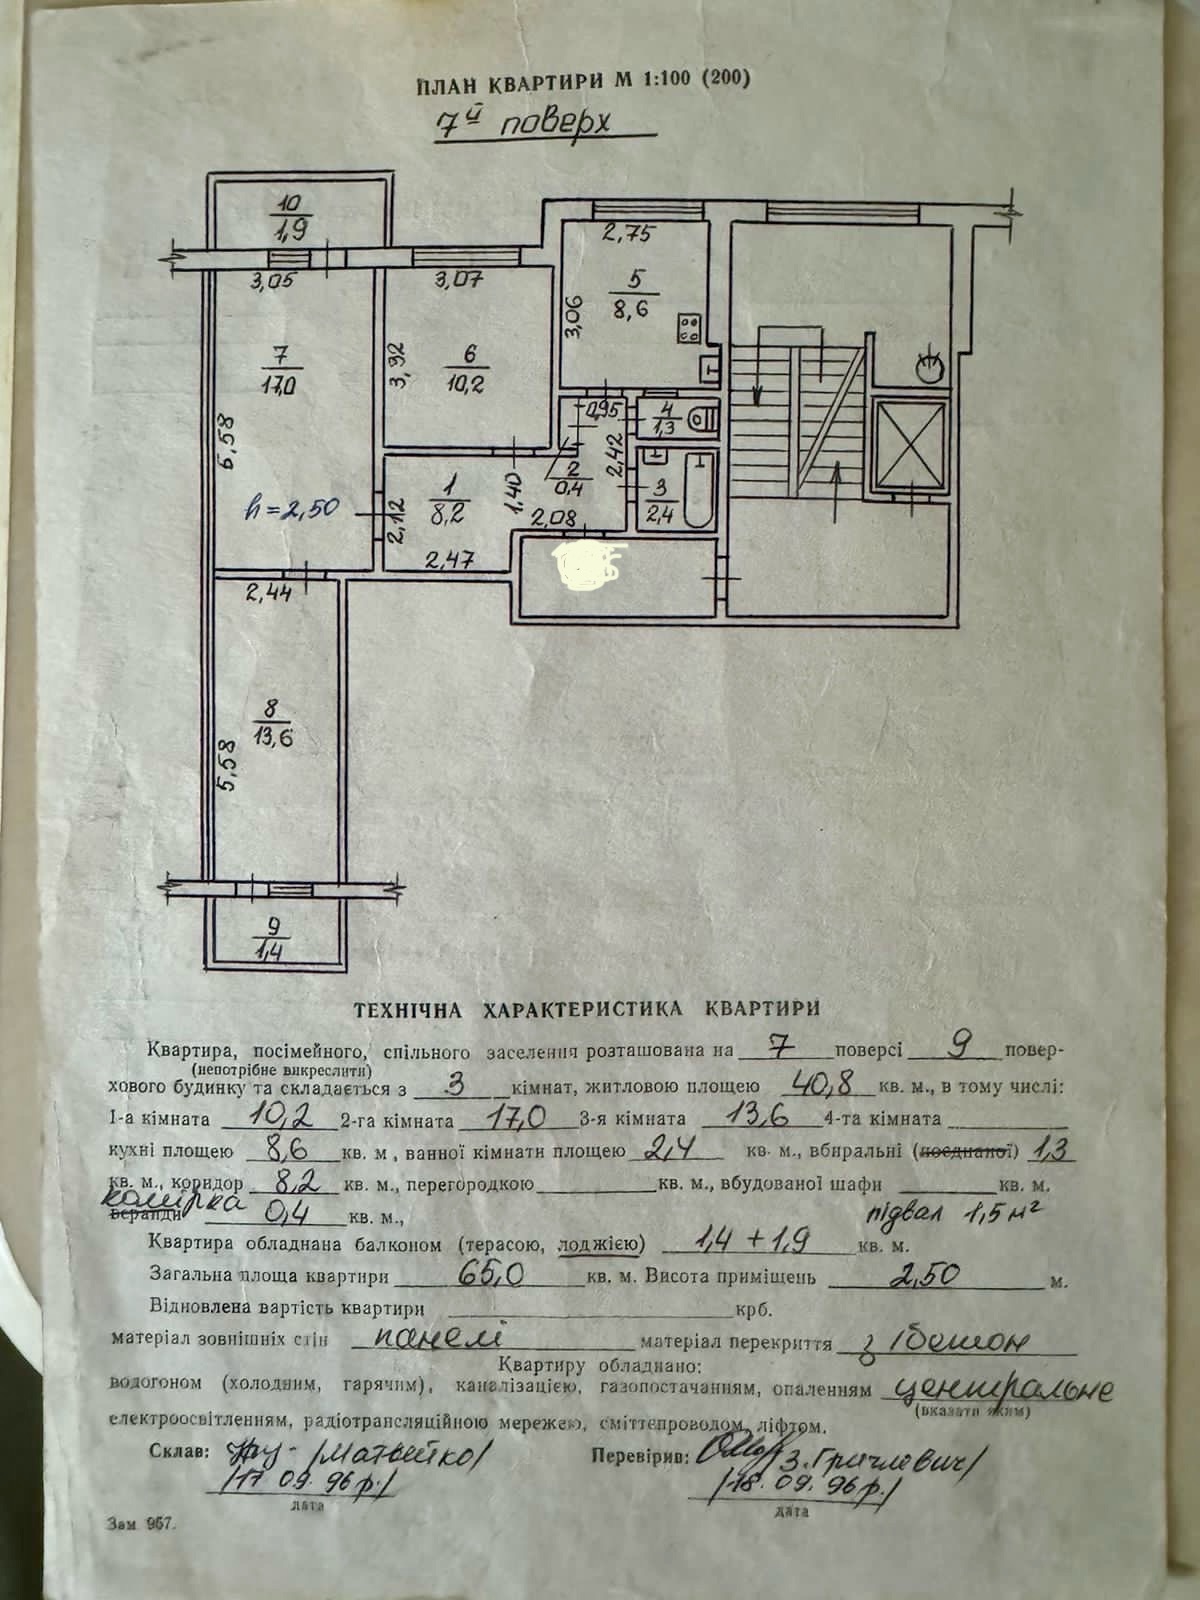 ПЛАН КВАРТИРИ М 1:100 (200)
7й поверх
10
1,9
3,05
3,07
2,75
5
8,6
3,06
7
17,0
3,32
6
10,2
0,95
4
1,3
5,58
2,42
2
0,4
3
2,4
h=2,50
2,12
1
8,2
1,40
2,08
2,47
2,44
8
13,6
5,58
9
1,4
ТЕХНІЧНА ХАРАКТЕРИСТИКА КВАРТИРИ
Квартира, посімейного, спільного заселення розташована на 7 поверсі 9 повер-
(непотрібне викреслити)
хового будинку та складається з 3 кімнат, житловою площею 40,8 кв. м., в тому числі:
1-а кімната 10,2 2-га кімната 17,0 3-я кімната 13,6 4-та кімната
кухні площею 8,6 кв. м., ванної кімнати площею 2,4 кв. м., вбиральні (поєднаної) 1,3
кв. м., коридор 8,2 кв. м., перегородкою кв. м., вбудованої шафи кв. м.
комірка
веранди 0,4 кв. м., підвал 1,5 м²
Квартира обладнана балконом (терасою, лоджією) 1,4 + 1,9 кв. м.
Загальна площа квартири 65,0 кв. м. Висота приміщень 2,50 м.
Відновлена вартість квартири крб.
матеріал зовнішніх стін панелі матеріал перекриття з/бетон
Квартиру обладнано:
водогоном (холодним, гарячим), каналізацією, газопостачанням, опаленням центральне
(вказати яким)
електроосвітленням, радіотрансляційною мережею, сміттепроводом, ліфтом.
Склав: /Матвійко/ Перевірив: /З. Гричлевич/
/17 09. 96 р./ /18. 09. 96 р./
дата дата
Зам 967.